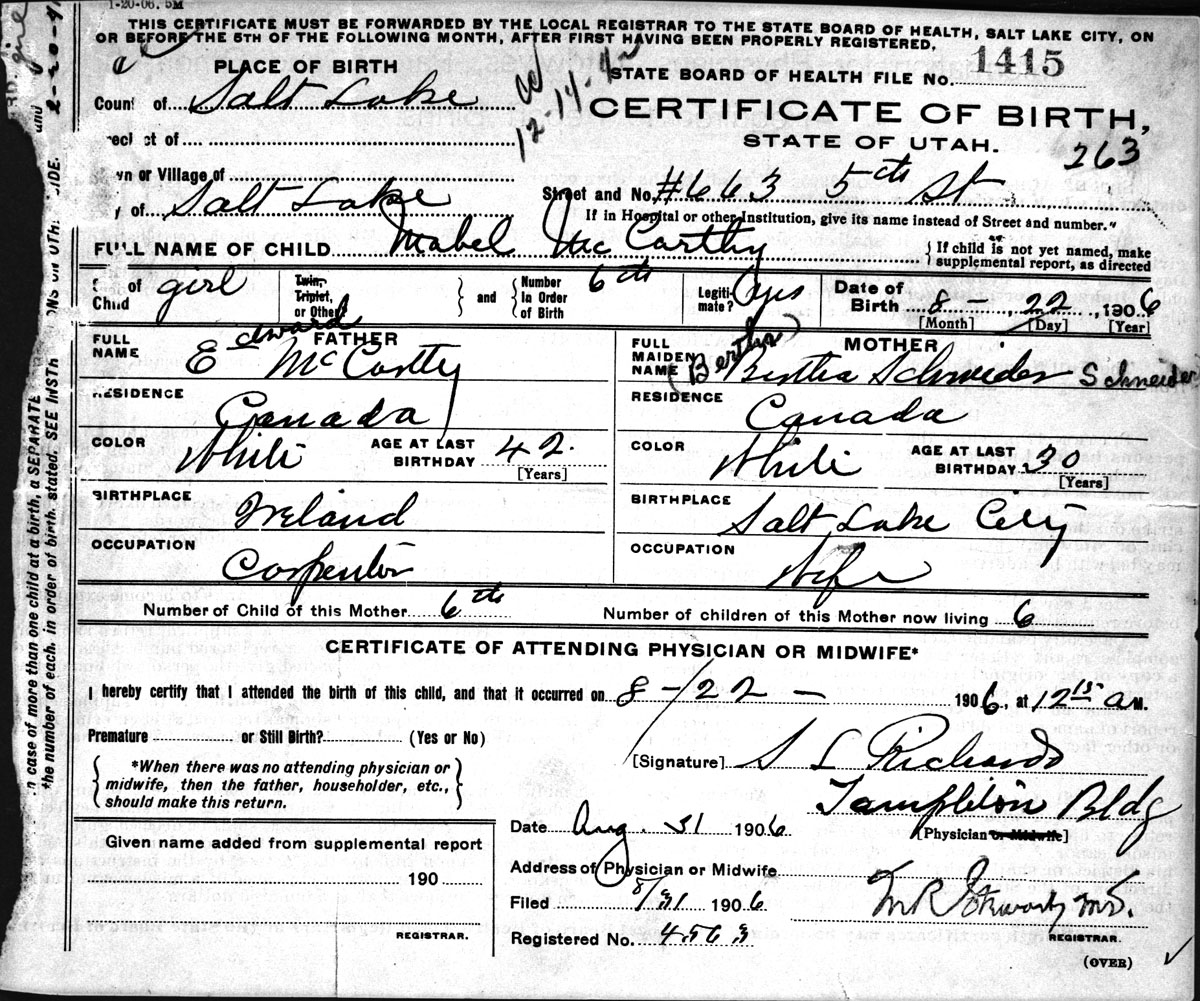 1-20-06. 5M
THIS CERTIFICATE MUST BE FORWARDED BY THE LOCAL REGISTRAR TO THE STATE BOARD OF HEALTH, SALT LAKE CITY, ON
OR BEFORE THE 5TH OF THE FOLLOWING MONTH, AFTER FIRST HAVING BEEN PROPERLY REGISTERED.
PLACE OF BIRTH
STATE BOARD OF HEALTH FILE No. 1415
Count of Salt Lake
12-14-4
CERTIFICATE OF BIRTH,
STATE OF UTAH.
263
reci ct of
wn or Village of
y of Salt Lake
Street and No. #663 5th St
If in Hospital or other Institution, give its name instead of Street and number."
FULL NAME OF CHILD Mabel McCarthy
{ If child is not yet named, make supplemental report, as directed
of Child girl
Twin, Triplet, or Other?
} and {
Number In Order of Birth 6th
Legiti- mate? yes
Date of Birth 8 - 22, 1906
[Month] [Day] [Year]
FATHER
FULL NAME Edward McCartty
MOTHER
FULL MAIDEN NAME (Bertha) Bertha Schneider Schneider
RESIDENCE Canada
RESIDENCE Canada
COLOR White AGE AT LAST BIRTHDAY 42. [Years]
COLOR White AGE AT LAST BIRTHDAY 30 [Years]
BIRTHPLACE Ireland
BIRTHPLACE Salt Lake City
OCCUPATION Carpenter
OCCUPATION Wife
Number of Child of this Mother 6th
Number of children of this Mother now living 6
CERTIFICATE OF ATTENDING PHYSICIAN OR MIDWIFE*
I hereby certify that I attended the birth of this child, and that it occurred on 8-/22 - 1906, at 12 15 a M.
Premature or Still Birth? (Yes or No)
{ *When there was no attending physician or
midwife, then the father, householder, etc.,
should make this return. }
[Signature] S L Richards
Templeton Bldg
[Physician or Midwife]
Date Aug. 31 1906
Given name added from supplemental report
190
REGISTRAR.
Address of Physician or Midwife
Filed 8/31 1906
Registered No. 4563
REGISTRAR.
(OVER)
n case of more than one child at a birth, a SEPARATE
*the number of each, in order of birth, stated. SEE INSTR ONS ON OTH IDE.
girl
and 2-20-4